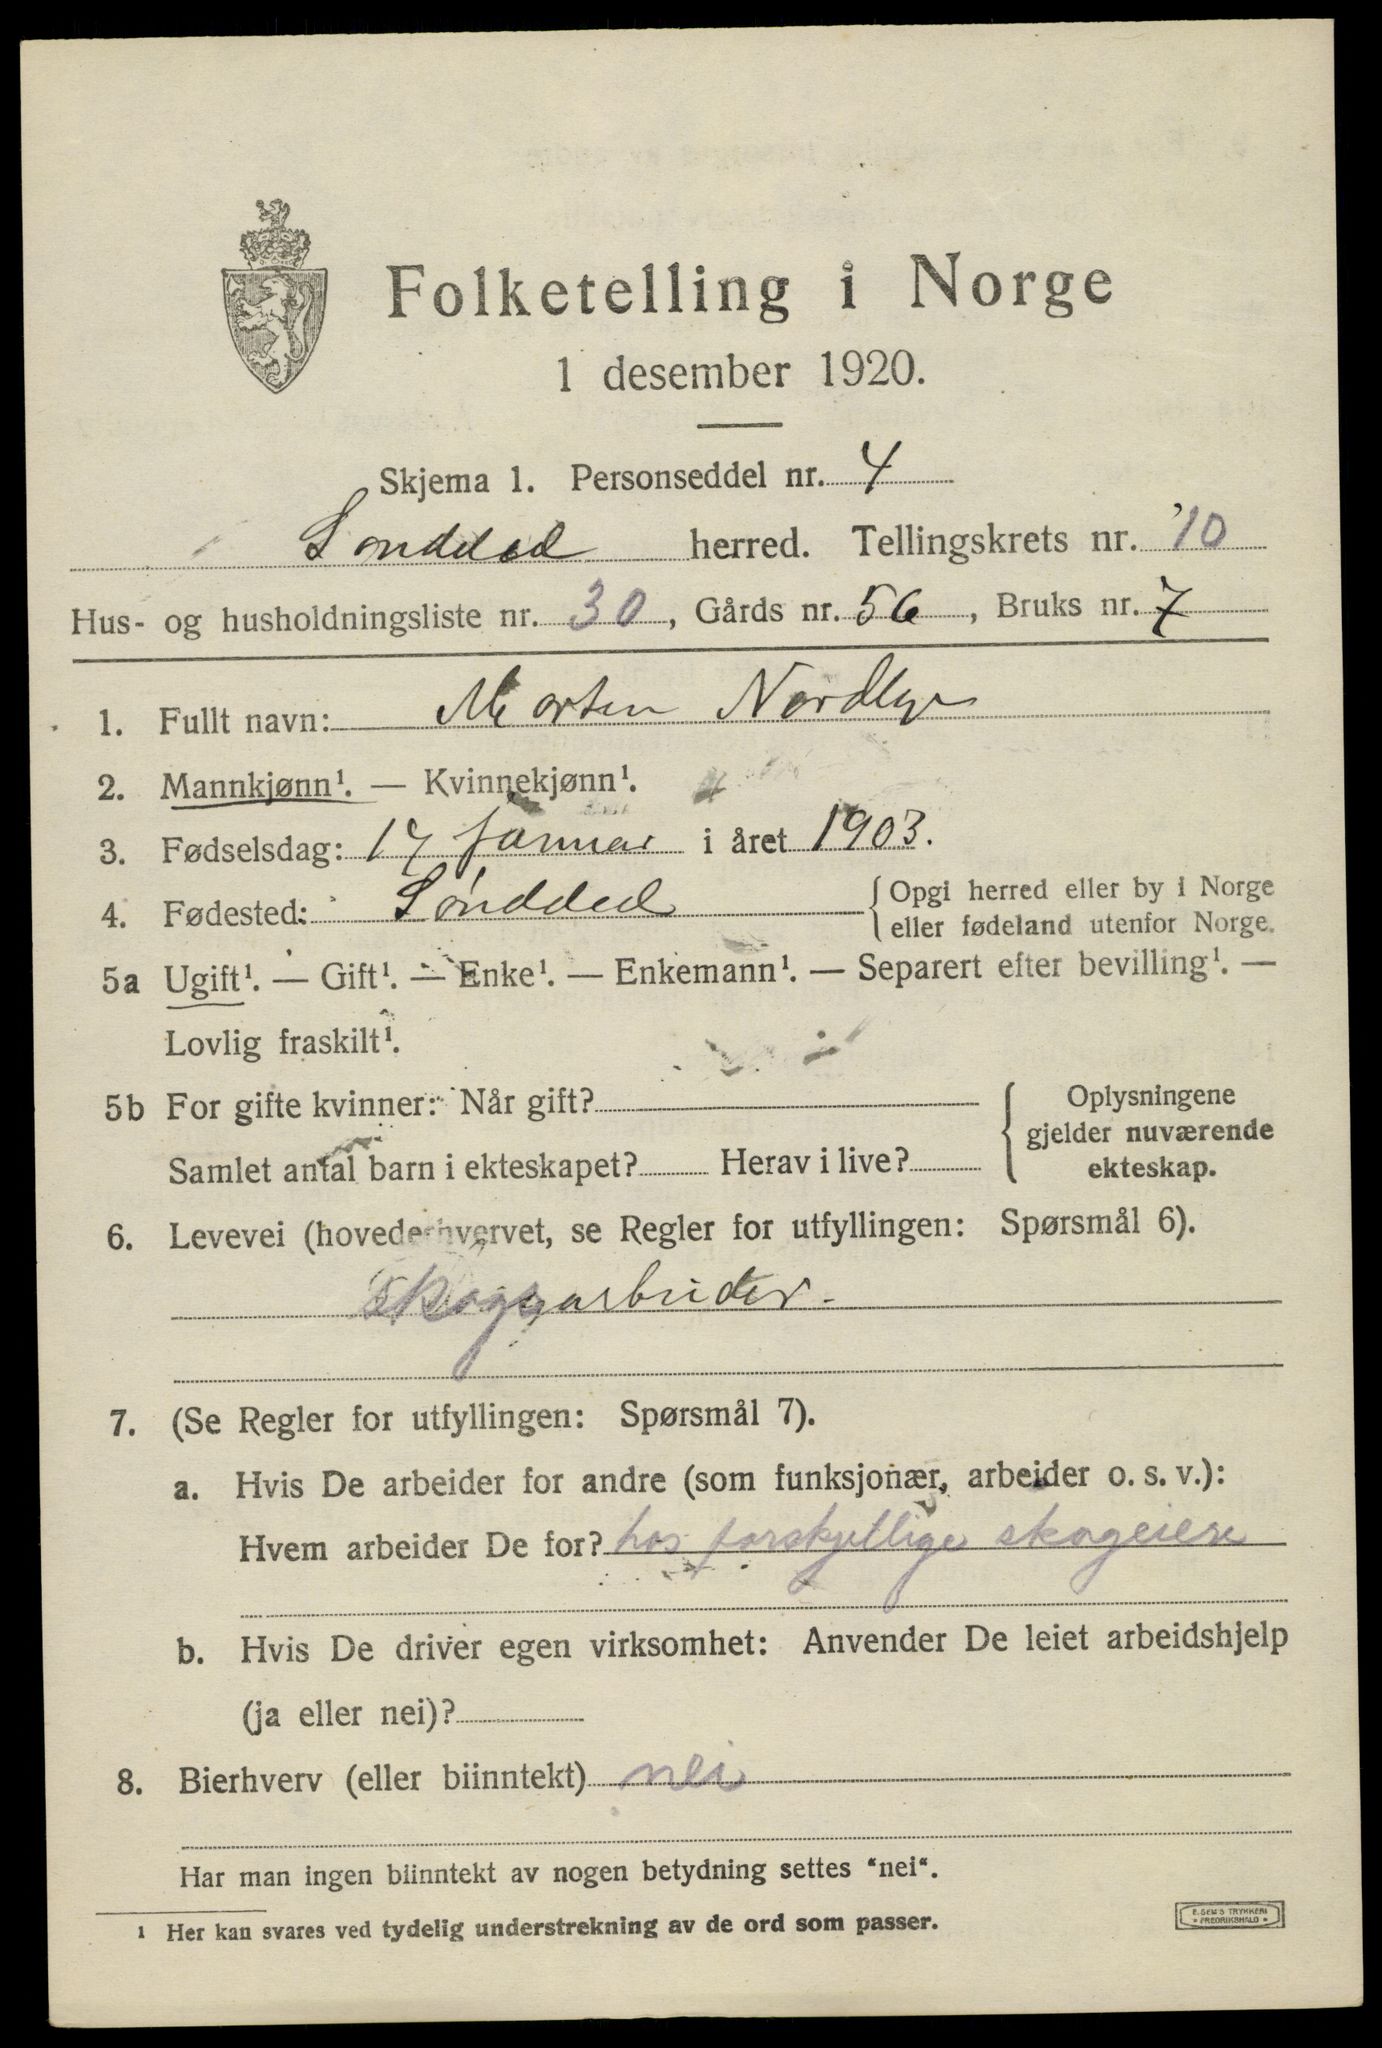 Folketelling i Norge
1 desember 1920.
Skjema 1. Personseddel nr. 4
Søndded herred. Tellingskrets nr. 10
Hus- og husholdningsliste nr. 30, Gårds nr. 56, Bruks nr. 7
1. Fullt navn: Morten Nordbye
2. Mannkjønn¹. — Kvinnekjønn¹.
3. Fødselsdag: 17 januar i året 1903.
4. Fødested: Søndded { Opgi herred eller by i Norge
eller fødeland utenfor Norge.
5a Ugift¹. — Gift¹. — Enke¹. — Enkemann¹. — Separert efter bevilling¹. —
Lovlig fraskilt¹.
5b For gifte kvinner: Når gift?
Samlet antal barn i ekteskapet? Herav i live?
Oplysningene
gjelder nuværende
ekteskap.
6. Levevei (hovederhvervet, se Regler for utfyllingen: Spørsmål 6).
Skogsarbeider.
7. (Se Regler for utfyllingen: Spørsmål 7).
a. Hvis De arbeider for andre (som funksjonær, arbeider o. s. v.):
Hvem arbeider De for? hos forskjellige skogeiere
b. Hvis De driver egen virksomhet: Anvender De leiet arbeidshjelp
(ja eller nei)?
8. Bierhverv (eller biinntekt) nei
Har man ingen biinntekt av nogen betydning settes "nei".
¹ Her kan svares ved tydelig understrekning av de ord som passer.
E. SEM'S TRYKKERI
FREDRIKSHALD